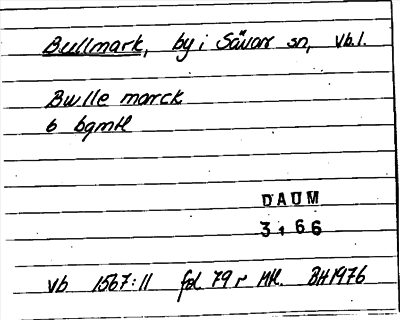 Bullmark, by i Sävar sn, Vb.l.
Bulle marck
6 bgmtl
DAUM
3166
Vb 1567:11 fol. 79 r Mtl. BH 1976